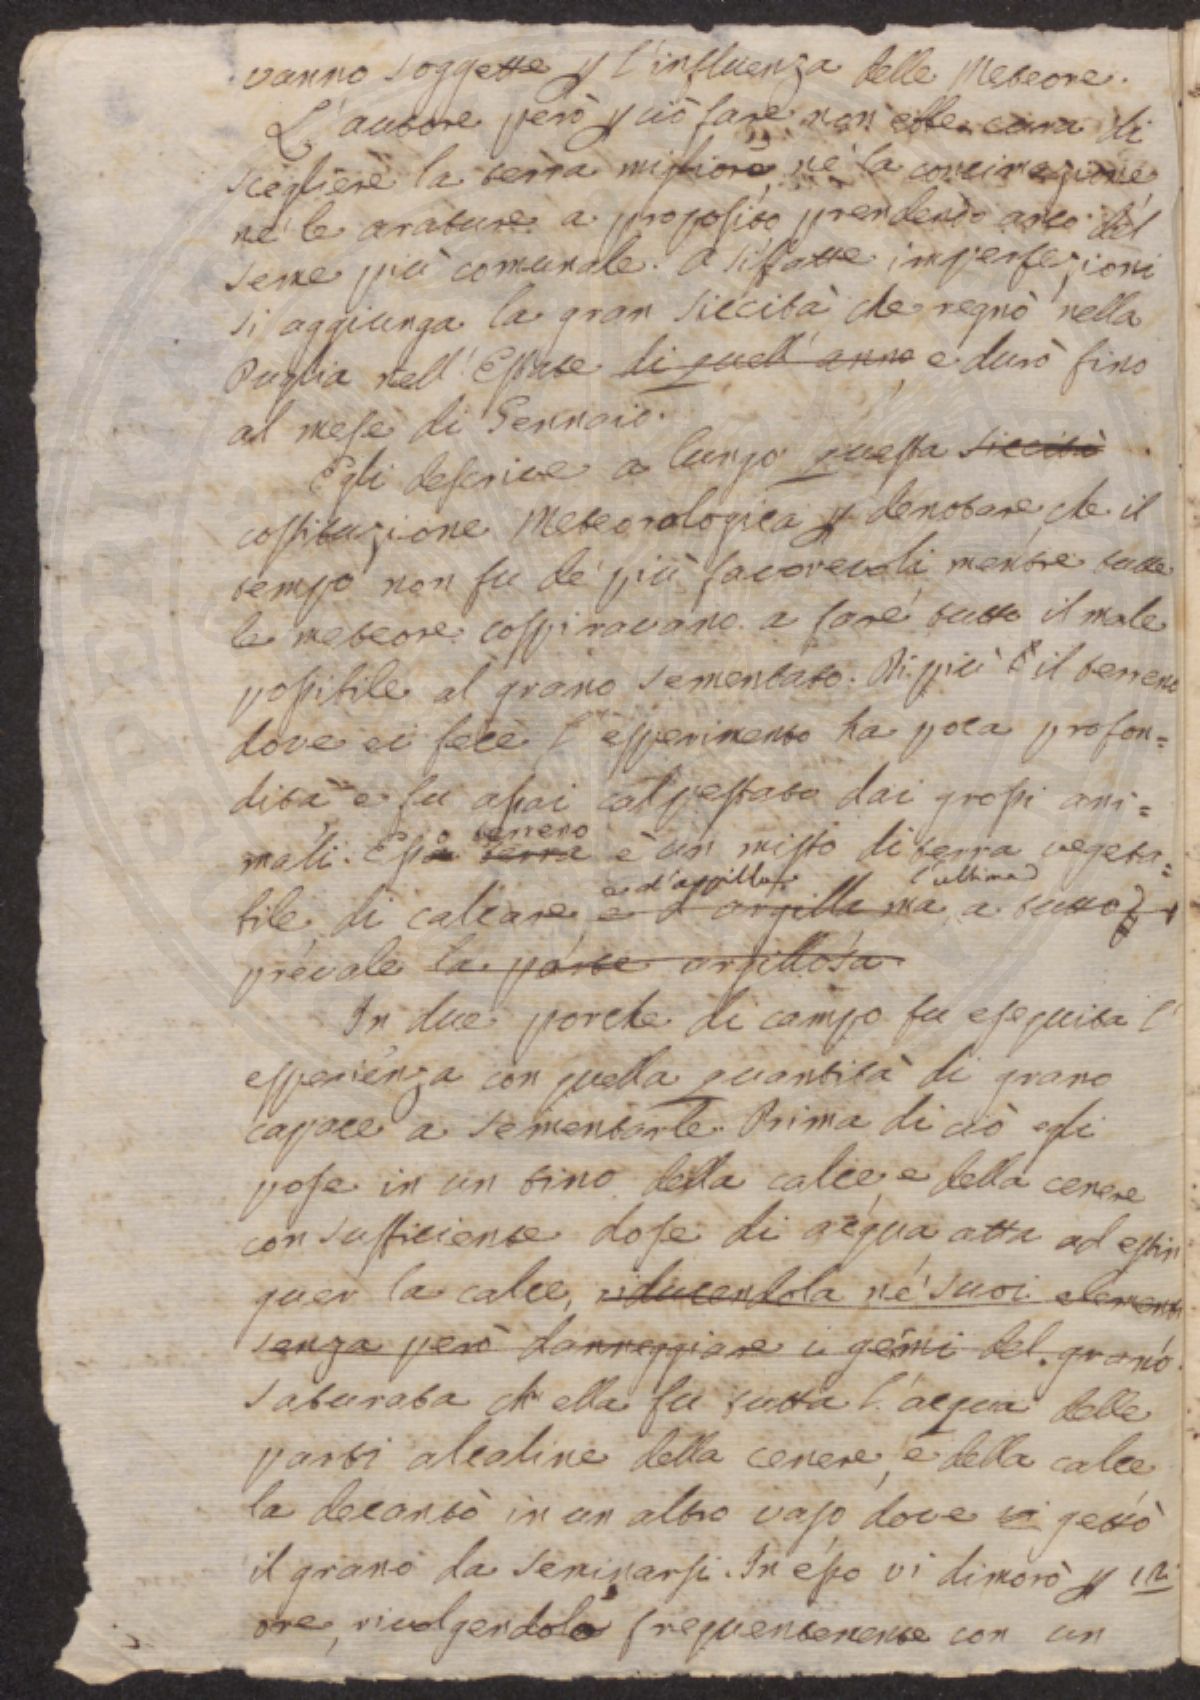 vanno soggette p l'influenza delle Meteore.
L'autore però p ciò fare non ebbe cura di
scegliere la terra migliore, nè la concimazione,
nè le arature a proposito prendendo anco del
seme più comunale. A siffatte imperfezioni
si aggiunga la gran siccità che regnò nella
Puglia nell'Estate di quell'anno e durò fino
al mese di Gennaio.
Egli descrive a lungo questa siccità
costituzione Meteorologica p denotare che il
tempo non fu de' più favorevoli mentre tutte
le meteore cospiravano a fare tutto il male
possibile al grano sementato. Di più il terreno
dove ei fece l'esperimento ha poca profon=
dità e fu assai calpestato dai grossi ani=
mali. Esso terra terreno è un misto di terra vegeta=
bile di calcare, e d'argilla e d'argilla ma a tutto l'ultima
prevale la parte argillosa
In due porche di campo fu eseguita l'
esperienza con quella quantità di grano
capace a sementarle. Prima di ciò egli
pose in un tino della calce, e della cenere
con sufficiente dose di acqua atta ad estin
guer la calce, riducendola ne' suoi elementi
senza però danneggiare i germi del grano.
Saturata ch'ella fu tutta l'acqua delle
parti alcaline della cenere, e della calce
la decantò in un altro vaso, dove vi gettò
il grano da seminarsi. In esso vi dimorò p 12
ore, rivolgendolo frequentemente con un